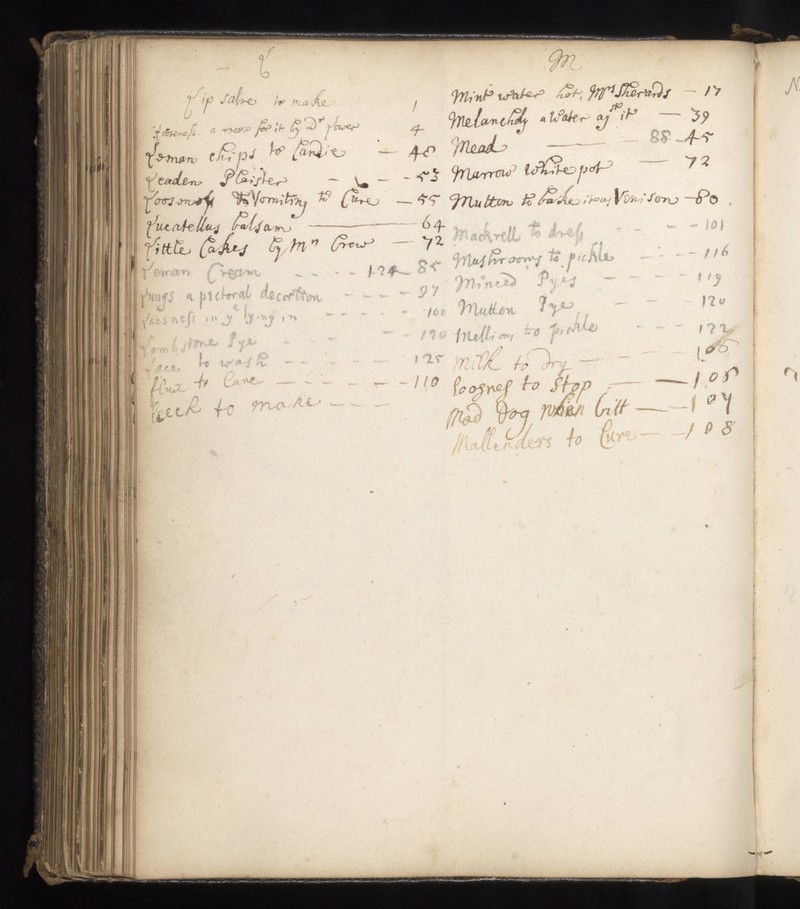 L
Lip salve to make 1
Loosenass a rece for it by Dr Lower 4
Lemon chips to Candie — 48
Leaden Plaister — - - 53
Loosonass & Vomiting to Cure — 55
Lucatellus balsam — 64
Little Cakes by Mrs Crow — 72
Leman Cream - - - - 124 - 85
Lungs a pictoral decoction - - - - 97
Loosness in ye lying in - - - - - 100
Lombstone Pye - - - 120
Lace to wash - - - - 125
flux to Cure — — — — - 110
Leeck to make — — —
M
Mint water hot, Mrs Sherards — 17
Melancholy a Water agst it — 39
Mead — 88 — 45
Marrow white pot — 72
Mutton to bake it as Venison — 80
Mackrell to dress - - - - 101
Mushrooms to pickle - - - - 116
Minced Pyes - - - - 119
Mutton Pye — — 120
Mellion to pickle - - - 122
Milk to dry — — 106
Loosnes to Stop — — 105
Mad Dog when bitt — 107
Mallenders to Cure — — 108
N